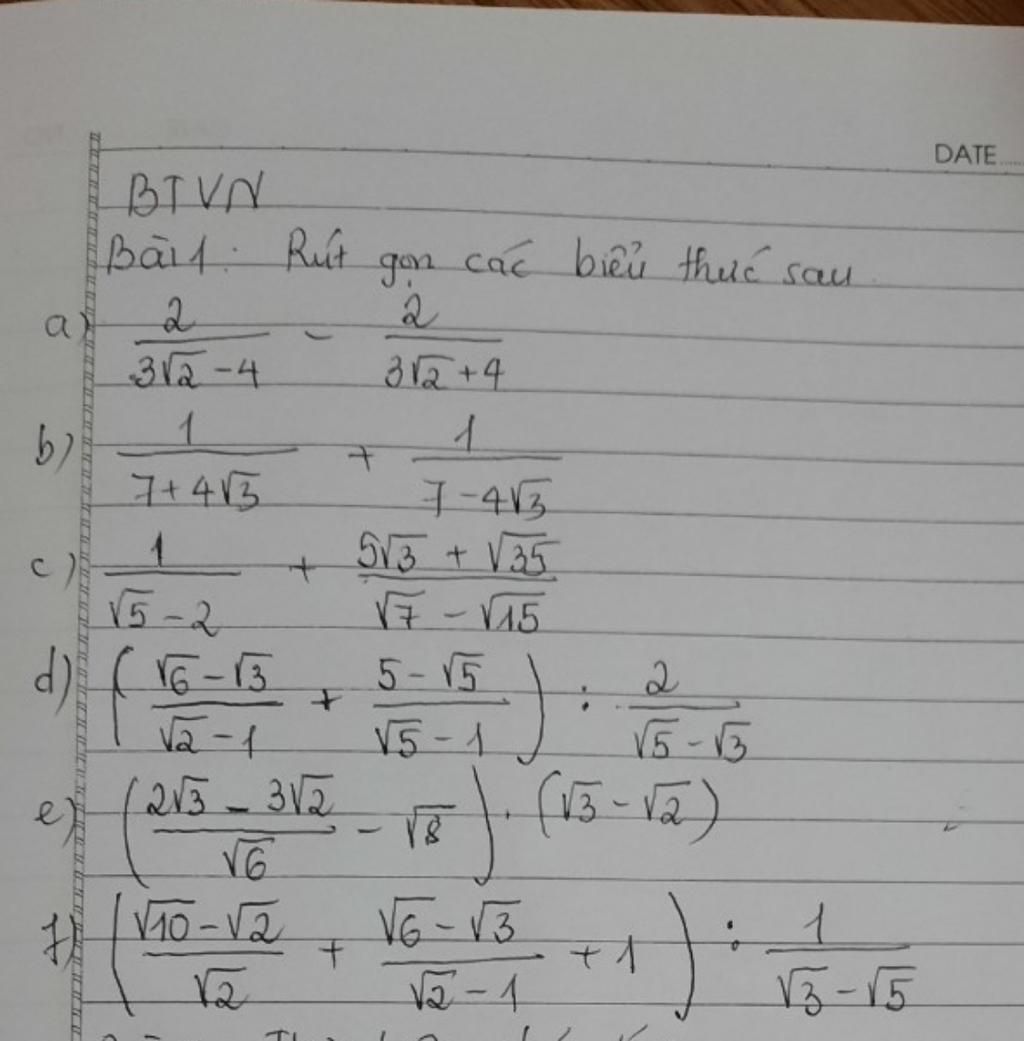 DATE......
BTVN
Bài 1: Rút gọn các biểu thức sau
a) 2/(3√2 - 4) - 2/(3√2 + 4)
b) 1/(7 + 4√3) + 1/(7 - 4√3)
c) 1/(√5 - 2) + (5√3 + √35)/(√7 - √15)
d) ((√6 - √3)/(√2 - 1) + (5 - √5)/(√5 - 1)) : 2/(√5 - √3)
e) ((2√3 - 3√2)/√6 - √8) . (√3 - √2)
f) ((√10 - √2)/√2 + (√6 - √3)/(√2 - 1) + 1) : 1/(√3 - √5)